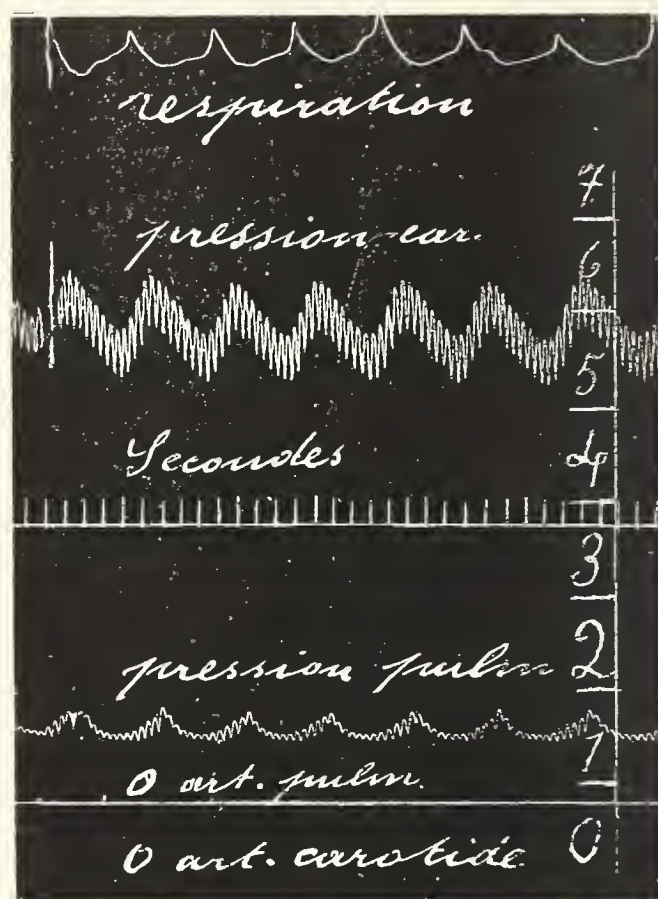 respiration
7
pression car.
6
5
Secondes
4
3
pression pulm
2
1
0 art. pulm.
0 art. carotide
0